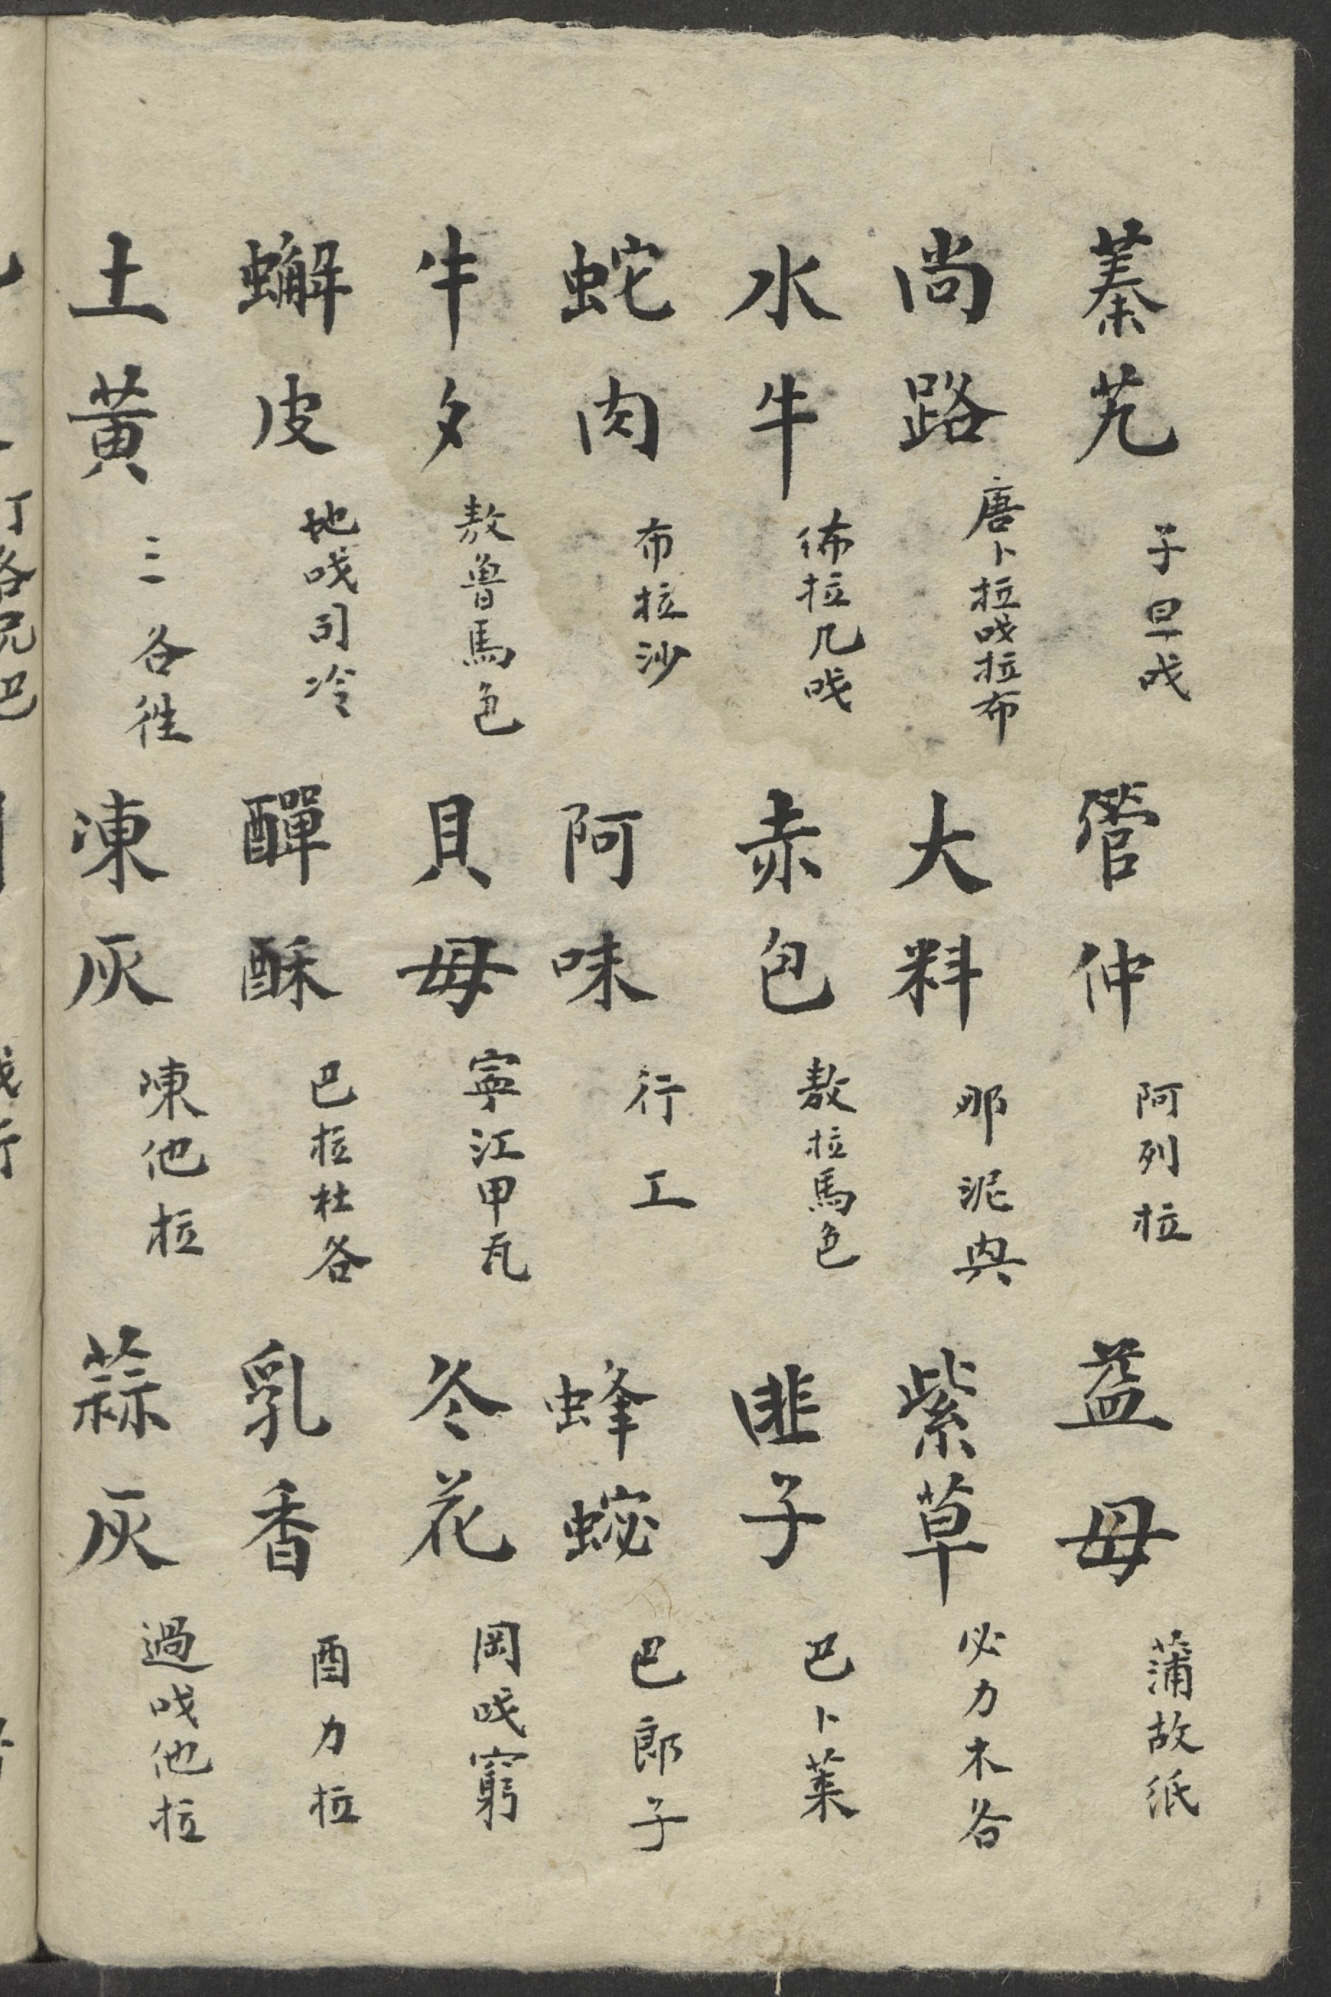 蓁艽 子旦戓 管仲 阿列拉 益母 蒲故紙
尚路 唐卜拉哦拉布 大料 那泥與 紫草 必力木各
水牛 佈拉几哦 赤包 敖拉馬色 匪子 巴卜菜
蛇肉 布拉沙 阿味 行工 蜂蜜 巴郎子
牛夕 敖魯馬色 貝母 寧江甲瓦 冬花 岡哦窮
蠏皮 地哦司冷 酥 巴拉杜各 乳香 酉力拉
土黃 三各徃 凍灰 陳他拉 蒜灰 過哦他拉